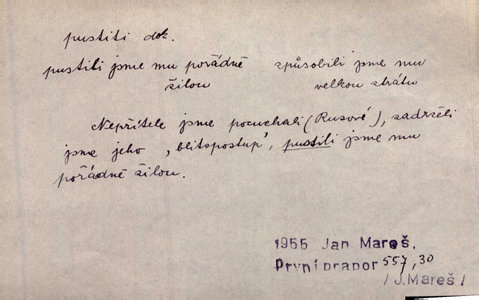 pustiti dok.
pustili jsme mu pořádně způsobili jsme mu
žilou velkou ztrátu
Nepřítele jsme pocuchali (Rusové), zadrželi
jsme jeho ‚blitzpostup', pustili jsme mu
pořádně žilou.
1955 Jan Mareš,
První prapor 557,30
/J.Mareš/